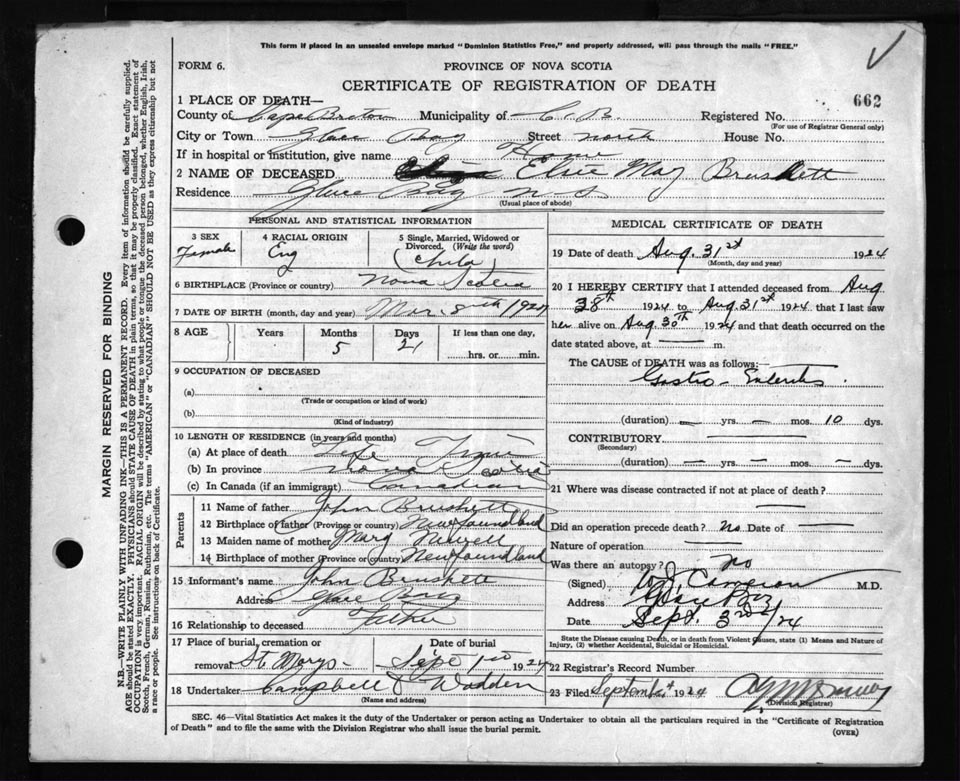 This form if placed in an unsealed envelope marked "Dominion Statistics Free," and properly addressed, will pass through the mails "FREE."
FORM 6.
PROVINCE OF NOVA SCOTIA
CERTIFICATE OF REGISTRATION OF DEATH
662
1 PLACE OF DEATH—
County of Cape Breton Municipality of C. B. Registered No.
(For use of Registrar General only)
City or Town Glace Bay Street North House No.
If in hospital or institution, give name Home
2 NAME OF DECEASED Elsie May Bruskett
Residence Glace Bay N-S
(Usual place of abode)
PERSONAL AND STATISTICAL INFORMATION
3 SEX Female
4 RACIAL ORIGIN Eng
5 Single, Married, Widowed or Divorced. (Write the word) (Child)
6 BIRTHPLACE (Province or country) Nova Scotia
7 DATE OF BIRTH (month, day and year) Mar. 8th 1924
8 AGE Years Months Days If less than one day,
5 21 hrs. or min.
9 OCCUPATION OF DECEASED
(a)
(Trade or occupation or kind of work)
(b)
(Kind of industry)
10 LENGTH OF RESIDENCE (in years and months)
(a) At place of death Life Time
(b) In province Nova Scotia
(c) In Canada (if an immigrant) Canadian
Parents
11 Name of father John Bruskett
12 Birthplace of father (Province or country) Newfoundland
13 Maiden name of mother Mary Newell
14 Birthplace of mother (Province or country) Newfoundland
15 Informant's name John Bruskett
Address Glace Bay
16 Relationship to deceased Father
17 Place of burial, cremation or Date of burial
removal St. Marys- Sept 1st 1924
18 Undertaker Campbell & Wadden
(Name and address)
MEDICAL CERTIFICATE OF DEATH
19 Date of death Aug. 31st 1924
(Month, day and year)
20 I HEREBY CERTIFY that I attended deceased from Aug
28th 1924 to Aug 31st 1924 that I last saw
her alive on Aug 30th 1924 and that death occurred on
date stated above, at — m.
The CAUSE of DEATH was as follows:
Gastro-Enteritis.
(duration) — yrs. — mos. 10 dys.
CONTRIBUTORY —
(Secondary)
(duration) — yrs. — mos. — dys.
21 Where was disease contracted if not at place of death? —
Did an operation precede death? No Date of —
Nature of operation —
Was there an autopsy? No
(Signed) W.J. Cameron M.D.
Address Glace Bay
Date Sept. 3rd /24
State the Disease causing Death, or in death from Violent Causes, state (1) Means and Nature of
Injury, (2) whether Accidental, Suicidal or Homicidal.
22 Registrar's Record Number
23 Filed September 1924
(Division Registrar)
SEC. 46—Vital Statistics Act makes it the duty of the Undertaker or person acting as Undertaker to obtain all the particulars required in the "Certificate of Registration
of Death" and to file the same with the Division Registrar who shall issue the burial permit.
(OVER)
MARGIN RESERVED FOR BINDING
N.B.—WRITE PLAINLY WITH UNFADING INK—THIS IS A PERMANENT RECORD. Every item of information should be carefully supplied.
AGE should be stated EXACTLY. PHYSICIANS should STATE CAUSE OF DEATH in plain terms, so that it may be properly classified. Exact statement of
OCCUPATION is very important. RACIAL ORIGIN will be described by stating to what people or tongue the deceased person belonged, whether English, Irish,
Scotch, French, German, Russian, Ruthenian, etc. The terms "AMERICAN" or "CANADIAN" SHOULD NOT BE USED as they express citizenship but not
a race or people. See instructions on back of Certificate.